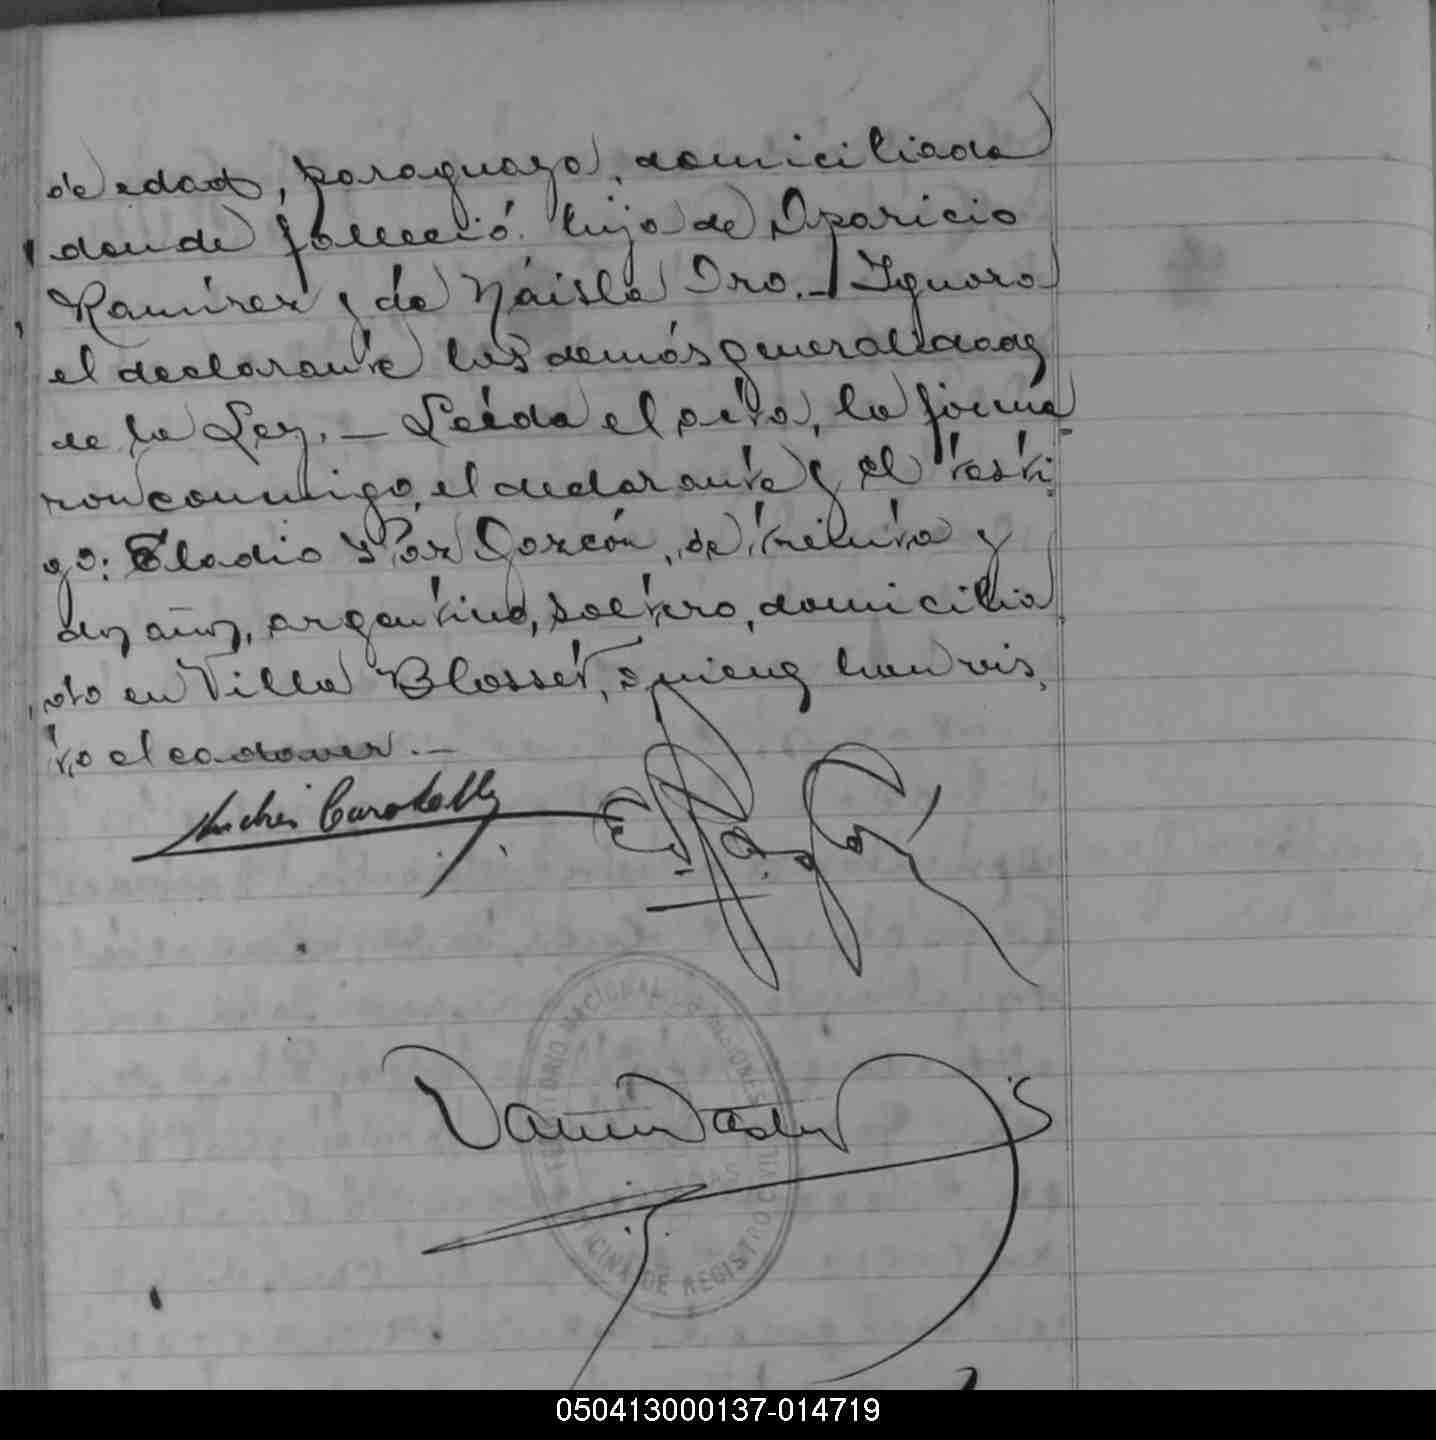 de edad, paraguaya, domiciliada
donde falleció. hija de Aparicio
Ramírez y de Náisla Oro.- Ignora
el declarante las demás generalidades
de la Ley. - Leída el acta, la firma
ron conmigo, el declarante y el testi
go: Eladio Garzón, de treinta y
dos años, argentino, soltero, domicilia
do en Villa Blosset, quienes han vis
to el cadaver.-
TERRITORIO NACIONAL DE MISIONES
OFICINA DE REGISTRO CIVIL
050413000137-014719